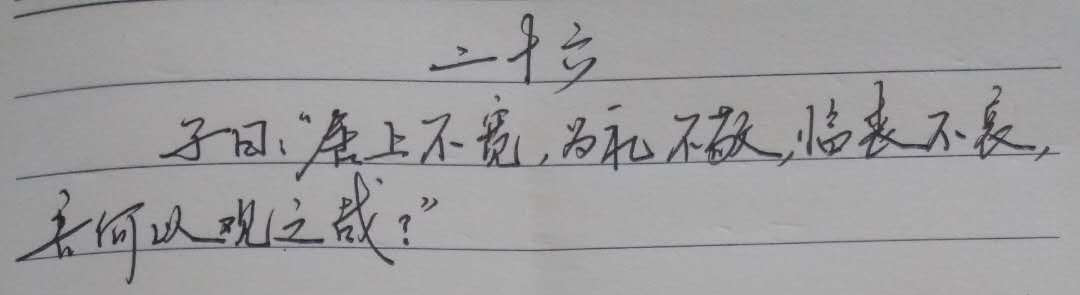 二十六
子曰：“居上不宽，为礼不敬，临丧不哀，
吾何以观之哉？”